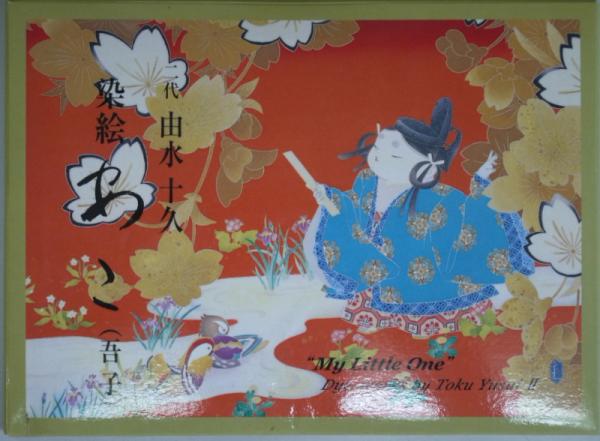 二代 由水十久
染絵 あこ（吾子）
"My Little One"
by Toku Yusui II